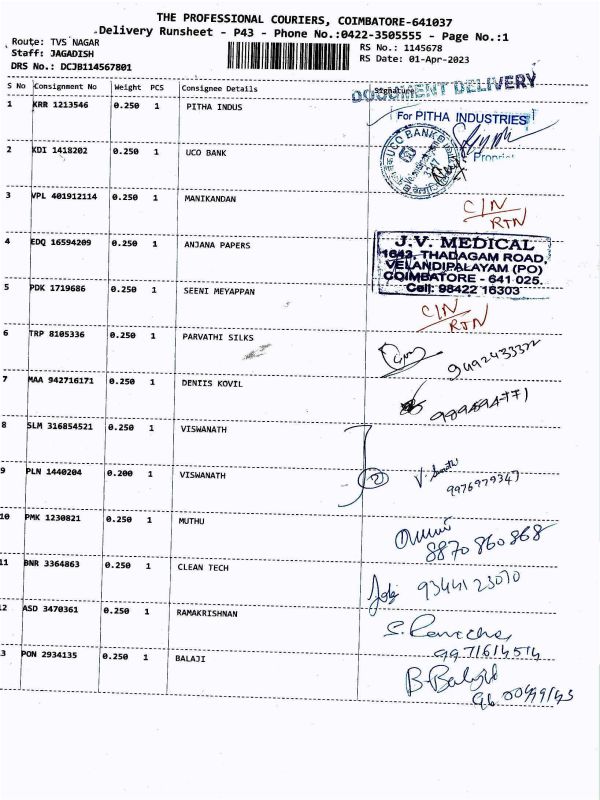 THE PROFESSIONAL COURIERS, COIMBATORE-641037
Delivery Runsheet - P43 - Phone No.:0422-3505555 - Page No.:1
Route: TVS NAGAR
Staff: JAGADISH
DRS No.: DCJB114567801
RS No.: 1145678
RS Date: 01-Apr-2023
S No Consignment No Weight PCS Consignee Details Signature
DOCUMENT DELIVERY
1 KRR 1213546 0.250 1 PITHA INDUS
For PITHA INDUSTRIES
2 KDI 1418202 0.250 1 UCO BANK
UCO BANK
3 VPL 401912114 0.250 1 MANIKANDAN
C/N
RTN
4 EDQ 16594209 0.250 1 ANJANA PAPERS
J.V. MEDICAL
1643, THADAGAM ROAD,
VELANDIPALAYAM (PO)
COIMBATORE - 641 025.
Cell: 98422 16303
5 PDK 1719686 0.250 1 SEENI MEYAPPAN
C/N
RTN
6 TRP 8105336 0.250 1 PARVATHI SILKS
7 MAA 942716171 0.250 1 DENIIS KOVIL
8 SLM 316854521 0.250 1 VISWANATH
9 PLN 1440204 0.200 1 VISWANATH
2
9976979347
10 PMK 1230821 0.250 1 MUTHU
8870 860 868
11 BNR 3364863 0.250 1 CLEAN TECH
93441 23010
2 ASD 3470361 0.250 1 RAMAKRISHNAN
9971614514
3 PON 2934135 0.250 1 BALAJI
B. Balaji